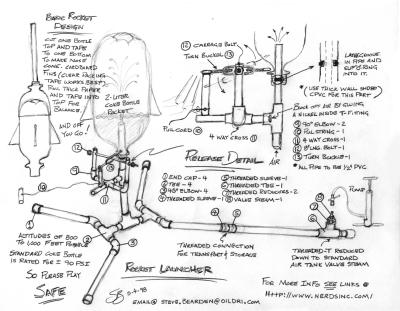 BASIC ROCKET
DESIGN
CUT ONE BOTTLE
TOP AND TAPE
TO ONE BOTTOM
TO MAKE NOSE
CONE. CARDBOARD
FINS (CLEAR PACKING
TAPE WORKS BEST)
PUT THICK PAPER
AND TAPE INTO
TOP FOR
BALANCE.
AND OFF
YOU GO!
2-LITER
COKE BOTTLE
ROCKET
CARRAGE BOLT
TURN BUCKLE
PULL CORD
4 WAY CROSS
AIR
RELEASE DETAIL
LATHE GROOVE
IN PIPE AND
SLIP O'RING
INTO IT.
* (USE THICK WALL SCHD 80
CPVC FOR THIS PART)
BLOCK OFF AIR BY GLUING
A NICKEL INSIDE T-FITTING
⑨ 90° ELBOW - 2
⑩ PULL STRING - 1
⑪ 4 WAY CROSS - 1
⑫ 8" LNG. BOLT - 1
⑬ TURN BUCKLE - 1
* ALL PIPE TO BE 1/2" PVC
① END CAP - 4
② TEE - 4
③ 45° ELBOW - 2
④ THREADED SLEEVE - 1
⑤ THREADED SLEEVE - 1
⑥ THREADED TEE - 1
⑦ THREADED REDUCERS - 2
⑧ VALVE STEAM - 1
PUMP
ALTITUDES OF 800
TO 1,000 FEET POSSIBLE
STANDARD COKE BOTTLE
IS RATED FOR ± 90 PSI
SO PLEASE PLAY
SAFE
THREADED CONNECTION
FOR TRANSPORT & STORAGE
THREADED-T REDUCED
DOWN TO STANDARD
AIR TANK VALVE STEAM
ROCKET LAUNCHER
EMAIL @ STEVE.BEARDEN@OILDRI.COM
FOR MORE INFO SEE LINKS @
HTTP://WWW.NERDSINC.COM/